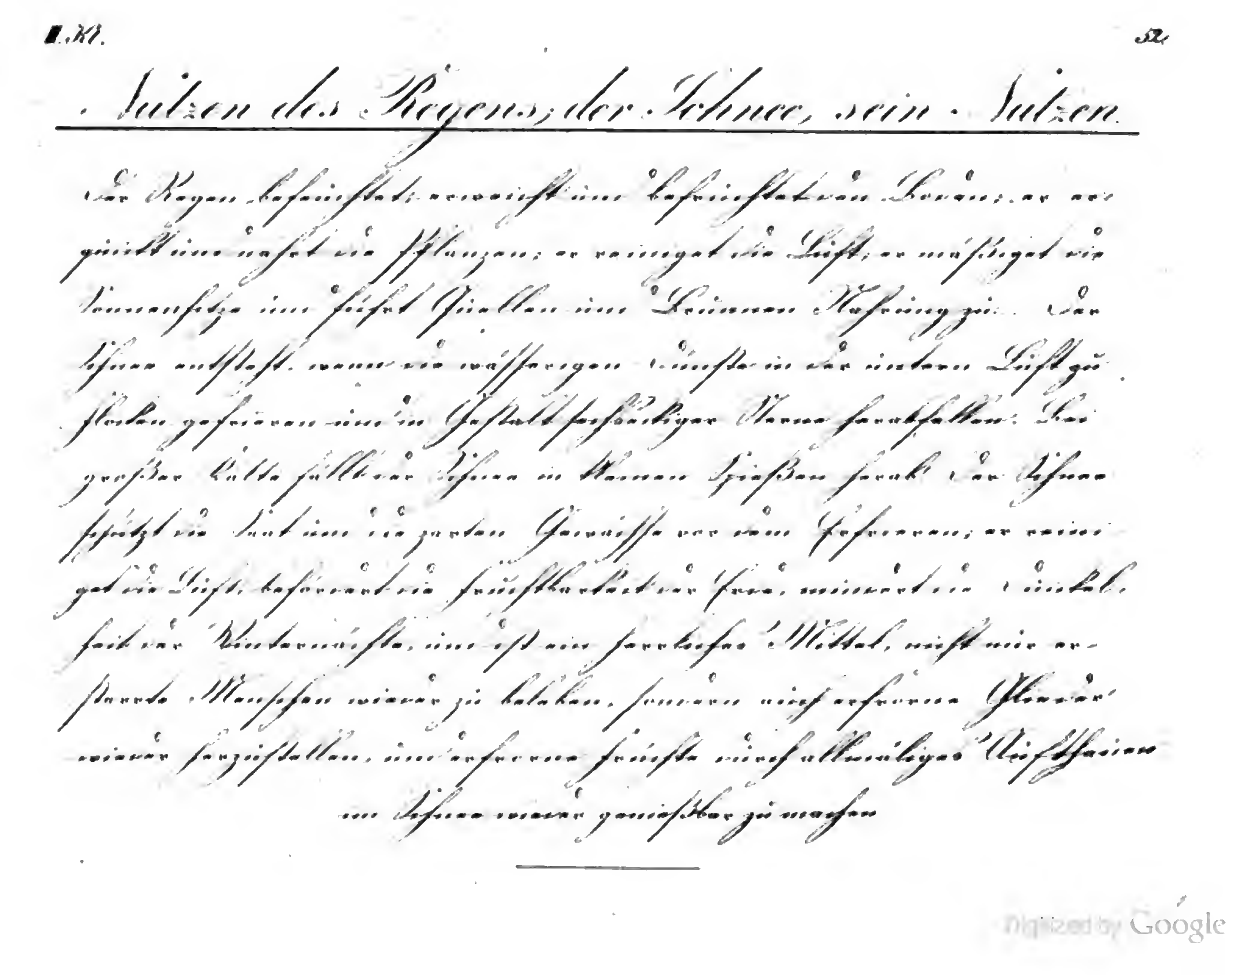 II. Kl.
52.
Nutzen des Regens; der Schnee, sein Nutzen.
Der Regen befeuchtet, erweicht und befruchtet den Boden; er er-
quickt und nährt die Pflanzen; er reiniget die Luft; er mäßiget die
Sonnenhitze und führt Quellen und Brunnen Nahrung zu. Der
Schnee entsteht, wenn die wässerigen Dünste in der untern Luft zu
Flocken gefrieren und in Gestalt sechseckiger Sterne herabfallen. Bei
großer Kälte fällt der Schnee in kleinen Spießen herab. Der Schnee
schützt die Saat und die zarten Gewächse vor dem Erfrieren; er reini-
get die Luft, befördert die Fruchtbarkeit der Erde, mindert die Dunkel-
heit der Winternächte, und ist ein herrliches Mittel, nicht nur er-
starrte Menschen wieder zu beleben, sondern auch erfrorne Glieder
wieder herzustellen, und erfrorne Früchte durch allmäliges Aufthauen
im Schnee wieder genießbar zu machen
Digitized by Google